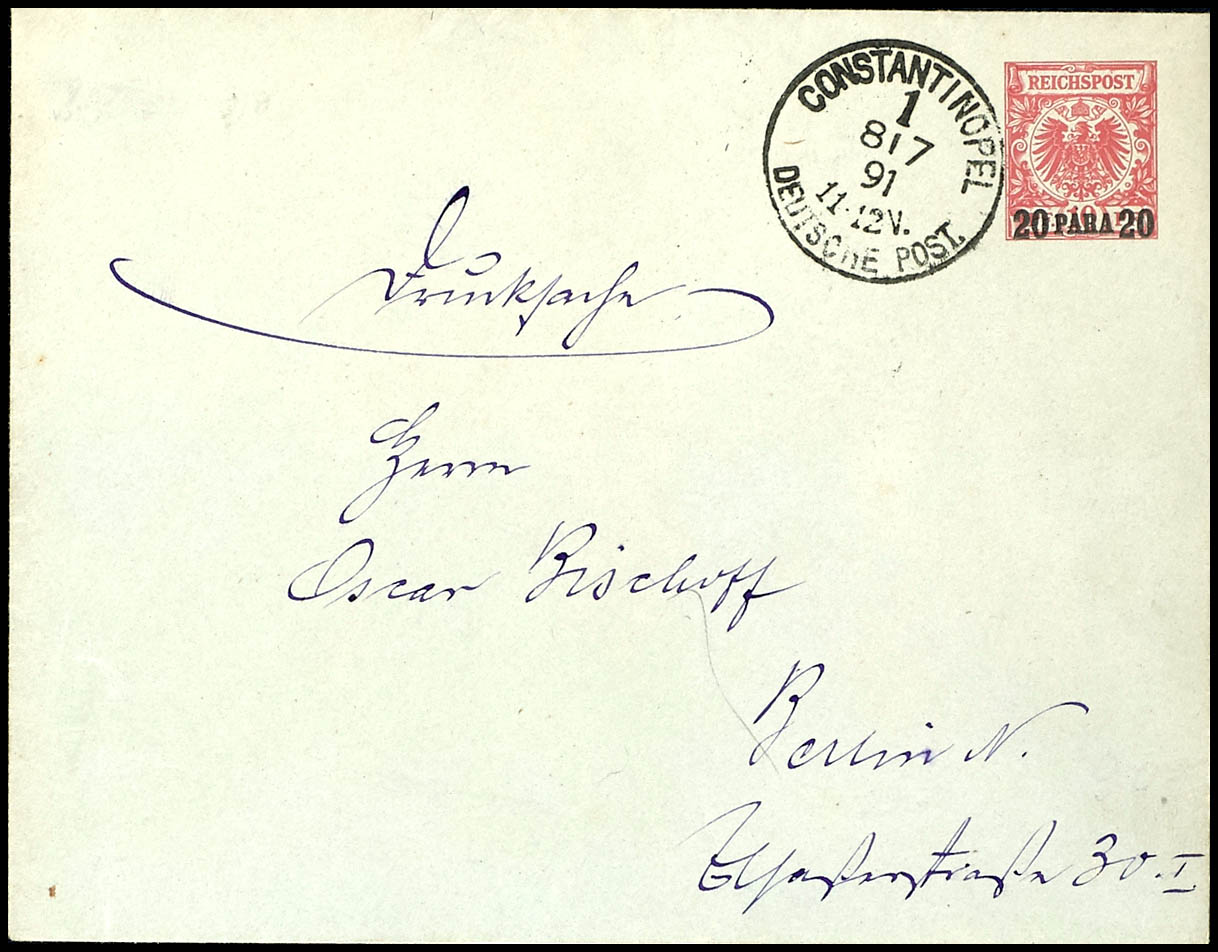 CONSTANTINOPEL
1
8 / 7
91
11-12V.
DEUTSCHE POST.
REICHSPOST
20 PARA 20
Drucksache
Herrn
Oscar Bischoff
Berlin N.
Elsasserstraße 30. I